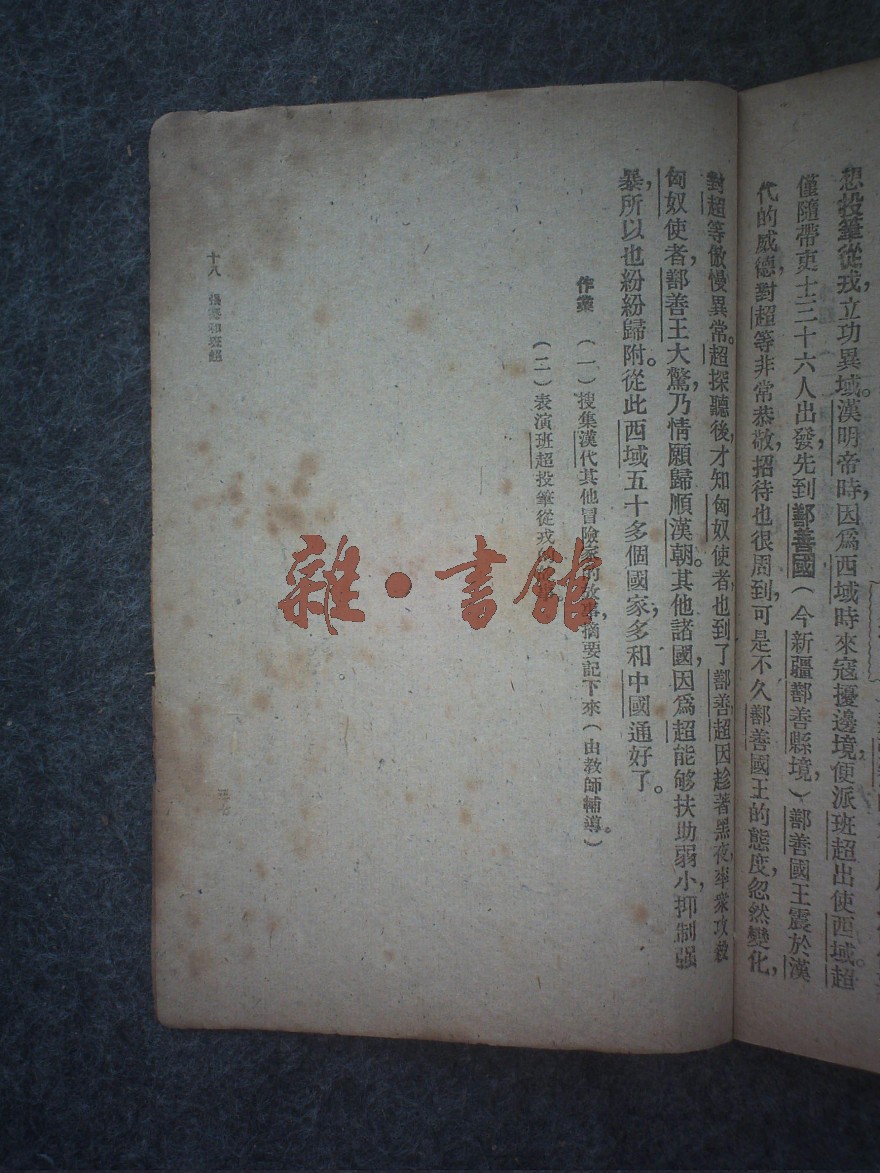 想投筆從戎，立功異域。漢明帝時，因爲西域時來寇擾邊境，便派班超出使西域。超
僅隨帶吏士三十六人出發，先到鄯善國（今新疆鄯善縣境，）鄯善國王震於漢
代的威德，對超等非常恭敬，招待也很周到，可是不久鄯善國王的態度忽然變化，
對超等傲慢異常。超探聽後，才知匈奴使者也到了鄯善，超因趁著黑夜，率衆攻殺
匈奴使者，鄯善王大驚，乃情願歸順漢朝。其他諸國，因爲超能够扶助弱小，抑制强
暴，所以也紛紛歸附。從此西域五十多個國家，多和中國通好了。
作業　（一）搜集漢代其他冒險家的故事，摘要記下來（由教師輔導。）
（二）表演班超投筆從戎
十八　張騫和班超
雜·書館